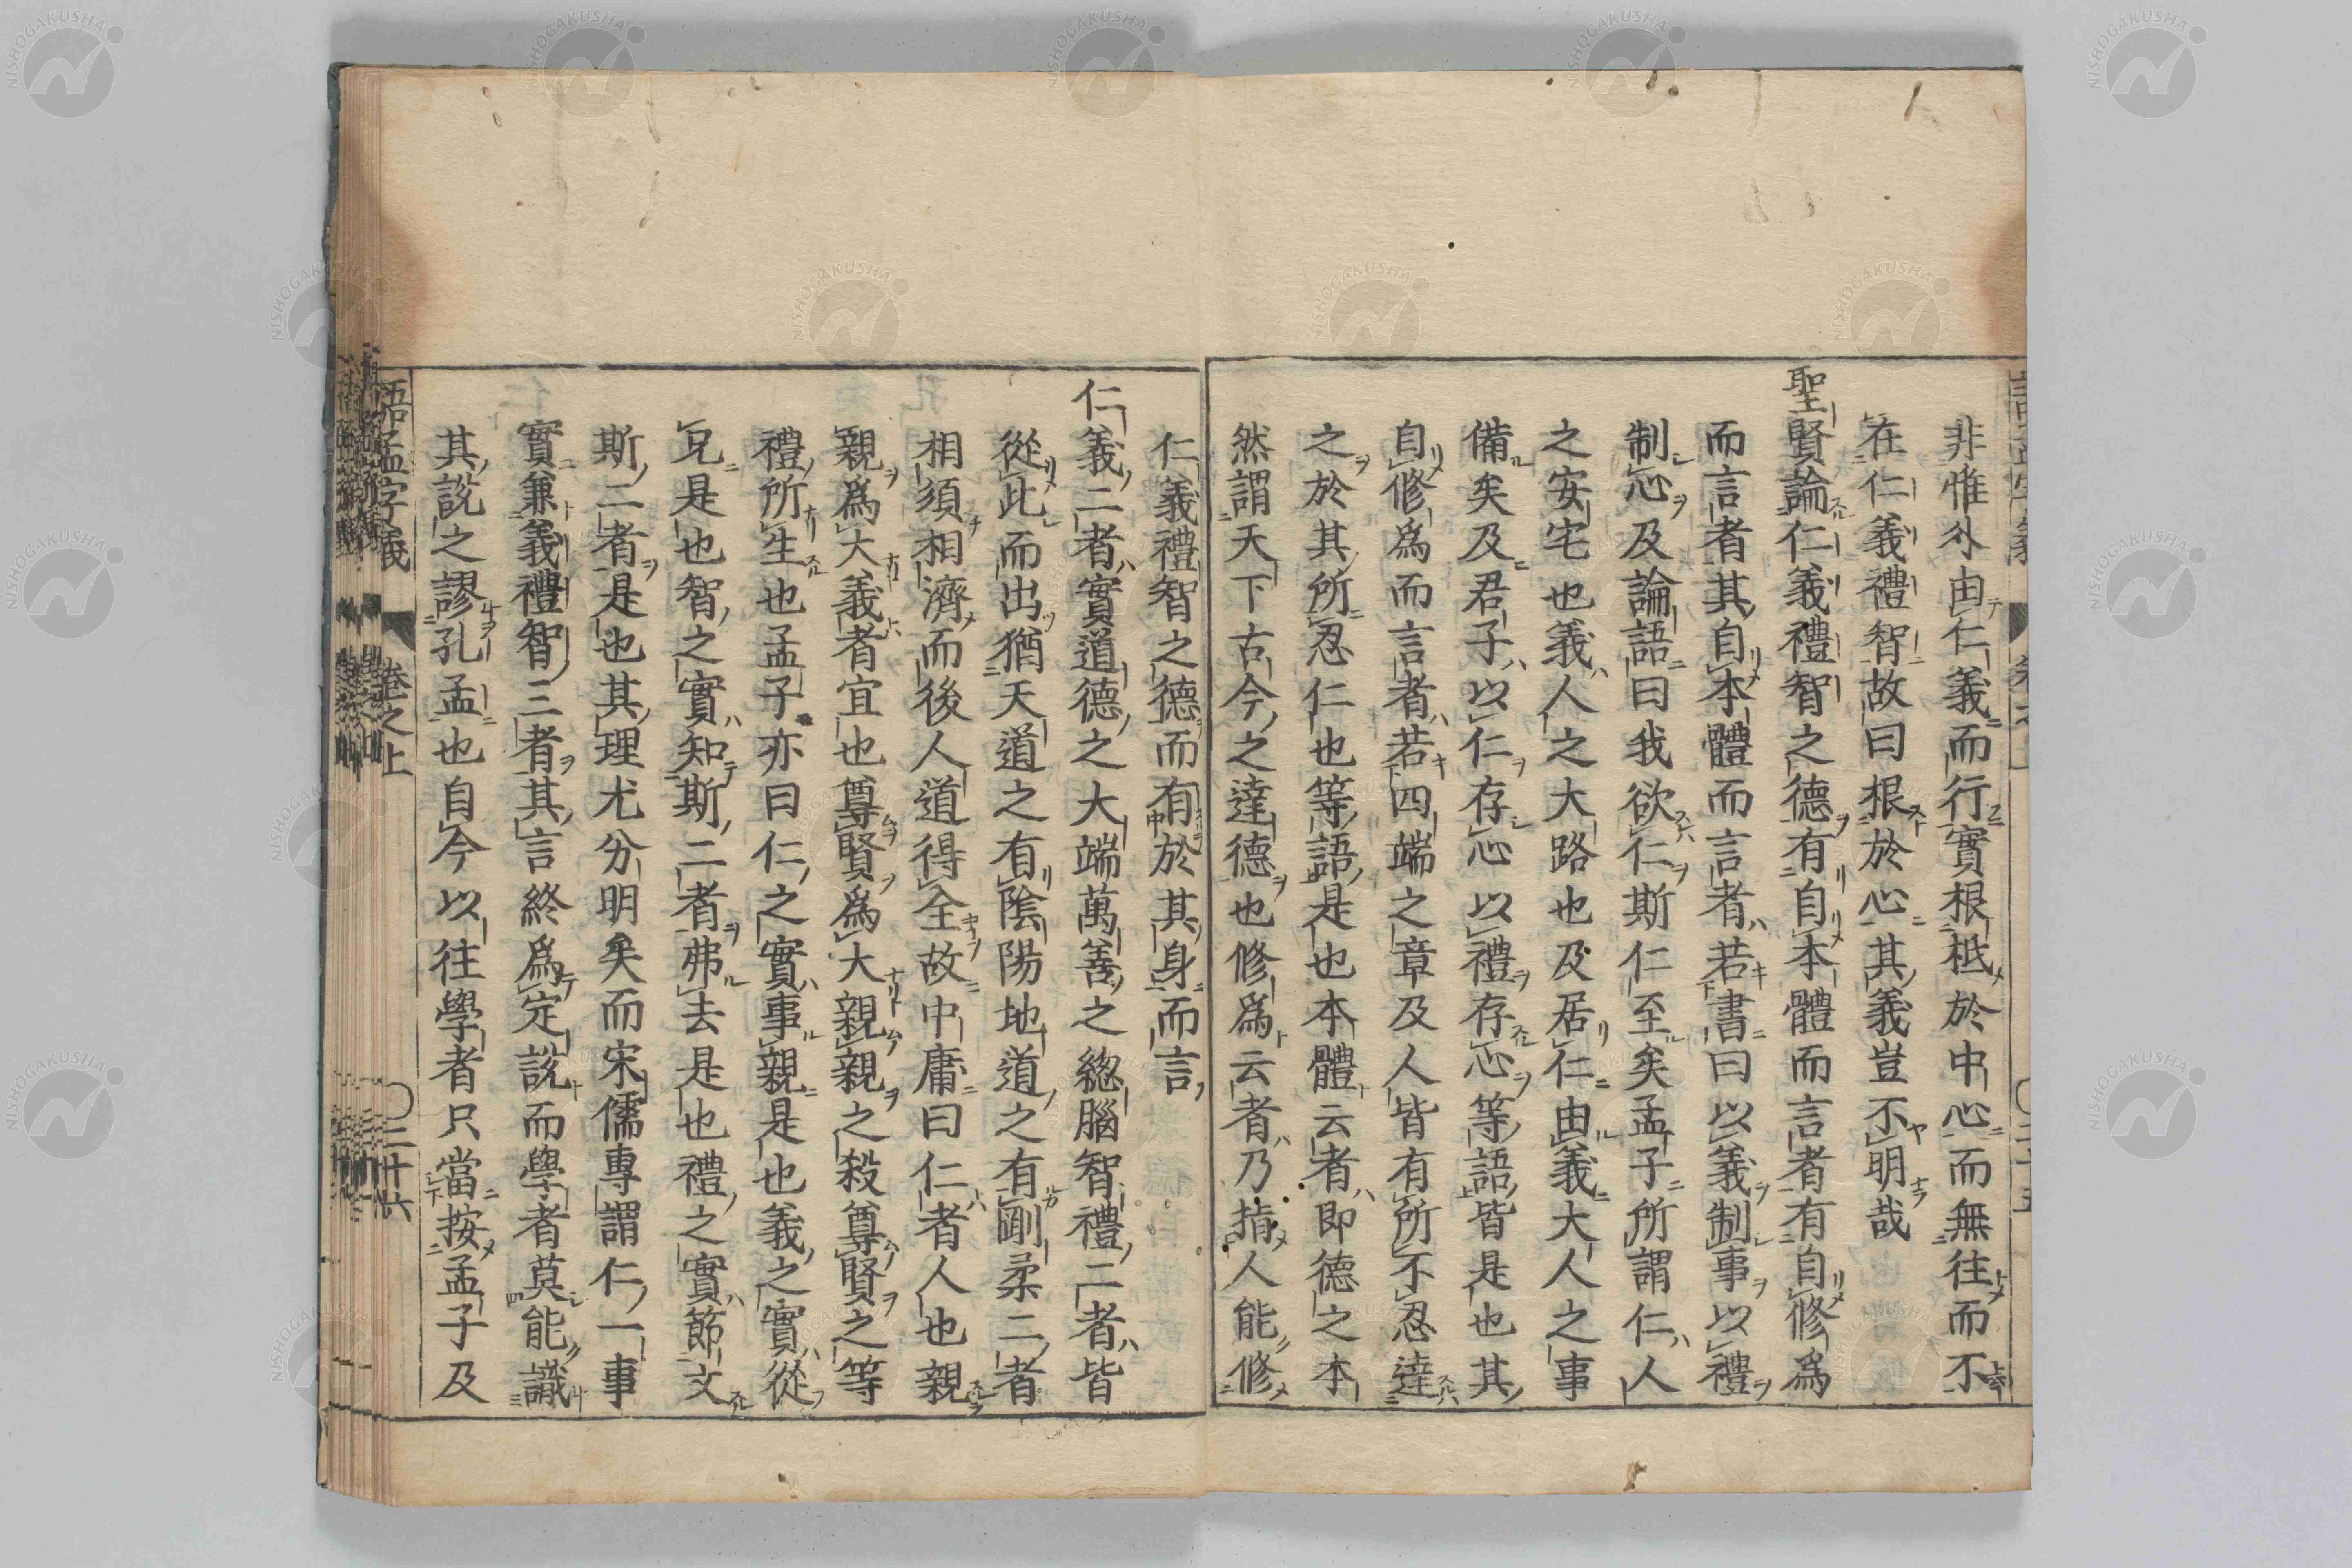 非惟外由仁義而行實根柢於中心而無往而不
在仁義禮智故曰根於心其義豈不明哉
聖賢論仁義禮智之德有自本體而言者有自修爲
而言者其自本體而言者若書曰以義制事以禮
制心及論語曰我欲仁斯仁至矣孟子所謂仁人
之安宅也義人之大路也及居仁由義大人之事
備矣及君子以仁存心以禮存心等語皆是也其
自修爲而言者若四端之章及人皆有所不忍達
之於其所忍仁也等語是也本體云者即德之本
然謂天下古今之達德也修爲云者乃指人能修
仁義禮智之德而有於其身而言
仁義二者實道德之大端萬善之總腦智禮二者皆
從此而出猶天道之有陰陽地道之有剛柔二者
相須相濟而後人道得全故中庸曰仁者人也親
親爲大義者宜也尊賢爲大親親之殺尊賢之等
禮所生也孟子亦曰仁之實事親是也義之實從
兄是也智之實知斯二者弗去是也禮之實節文
斯二者是也其理尤分明矣而宋儒專謂仁一事
實兼義禮智三者其言終爲定說而學者莫能識
其說之謬孔孟也自今以往學者只當按孟子及
語孟字義 卷之上 三十六
NISHOGAKUSHA